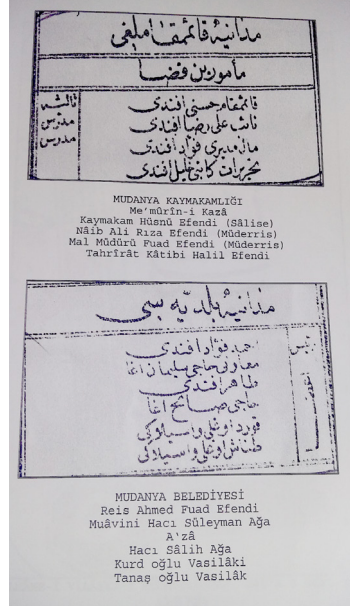 مدانیه قائمقاملغی
مأمورین قضا
قائمقام حسنی افندی ثالثه
نائب علی رضا افندی مدرس
مال مدیری فؤاد افندی مدرس
تحریرات کاتبی خلیل افندی
MUDANYA KAYMAKAMLIĞI
Me'mûrîn-i Kazâ
Kaymakam Hüsnü Efendi (Sâlise)
Nâib Ali Rıza Efendi (Müderris)
Mal Müdürü Fuad Efendi (Müderris)
Tahrîrât Kâtibi Halil Efendi
مدانیه بلدیه سی
رئیس احمد فؤاد افندی
معاونی حاجی سلیمان اغا
طاهر افندی
حاجی صالح اغا
قورد اوغلی واسیلاکی
طناش اوغلی واسیلاکی
MUDANYA BELEDİYESİ
Reis Ahmed Fuad Efendi
Muâvini Hacı Süleyman Ağa
A'zâ
Hacı Sâlih Ağa
Kurd oğlu Vasilâki
Tanaş oğlu Vasilâk